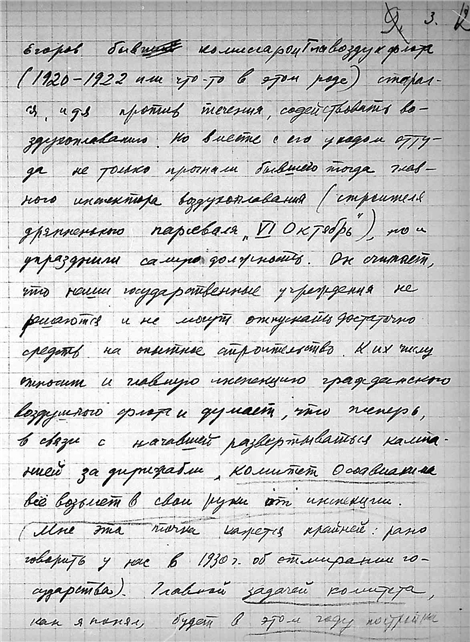 3.
Егоров бывш комиссаром Главоздухофлота
(1920–1922 или что-то в этом роде) старал-
ся, идя против течения, содействовать во-
здухоплаванию. Но вместе с его уходом отту-
да не только прогнали бывшего тогда глав-
ного инспектора воздухоплавания (строителя
дрянненького парсеваля „VI Октябрь"), но и
упразднили самую должность. Он считает,
что наши государственные учреждения не
решаются и не могут отпускать достаточно
средств на опытное строительство. К их числу
относит и главную инспекцию гражданского
воздушного флота и думает, что теперь,
в связи с начавшей развертываться кампа-
нией за дирижабли, комитет Осоавиахима
всё возьмет в свои руки от инспекции.
(Мне эта точка кажется крайней: рано
говорить у нас в 1930 г. об отмирании го-
сударства). Главной задачей комитета,
как я понял, будет в этом году постройка